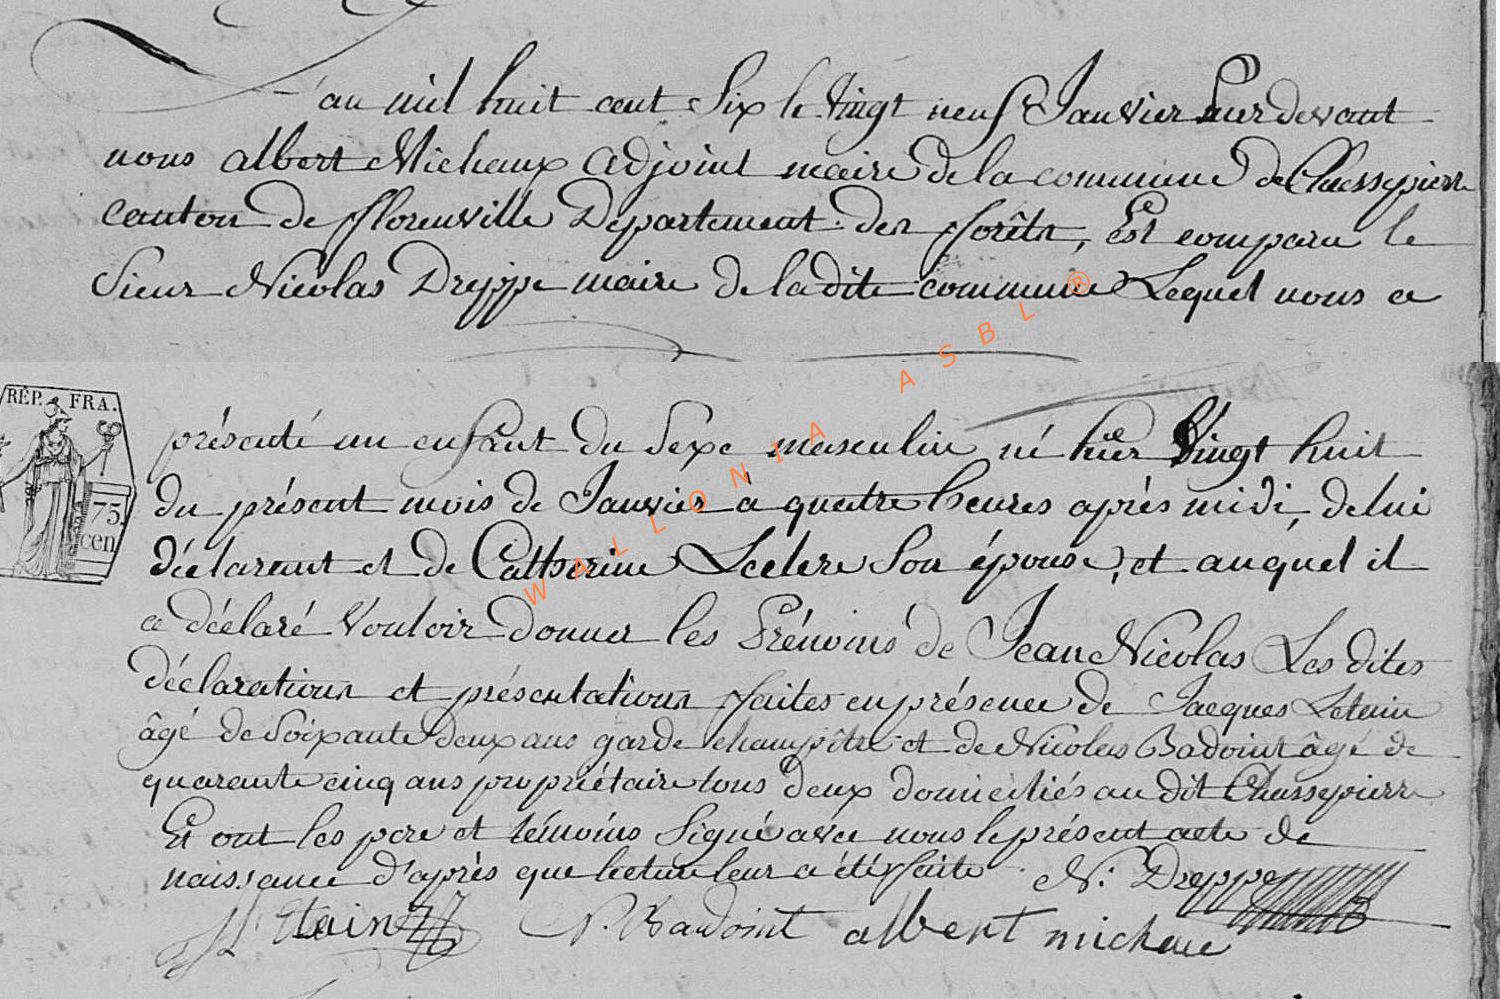 L'an mil huit cent Six le Vingt neuf Janvier Pardevant
nous albert Michaux adjoint maire de la commune de Chassepierre
canton de fflorenville Département des fforêts, Est comparu le
Sieur Nicolas Dreppe maire de la dite commune Lequel nous a
RÉP. FRA.
75
cen
présenté un enfant du Sexe masculin né hier Vingt huit
du présent mois de Janvier à quatre heures après midi, de lui
déclarant et de Catherine Leclere Son épouse, et auquel il
a déclaré Vouloir donner les Prénoms de Jean Nicolas Les dites
déclarations et présentations ffaites en présence de Jacques Létain
âgé de Soixante deux ans garde champêtre et de Nicolas Badoint âgé de
quarante cinq ans propriétaire tous deux domiciliés au dit Chassepierre
Et ont les père et témoins Signé avec nous le présent acte de
naissance d'après que lecture leur a été ffaite N: Dreppe
Letain N. Badoint albert michaux
WALLONIA ASBL ®